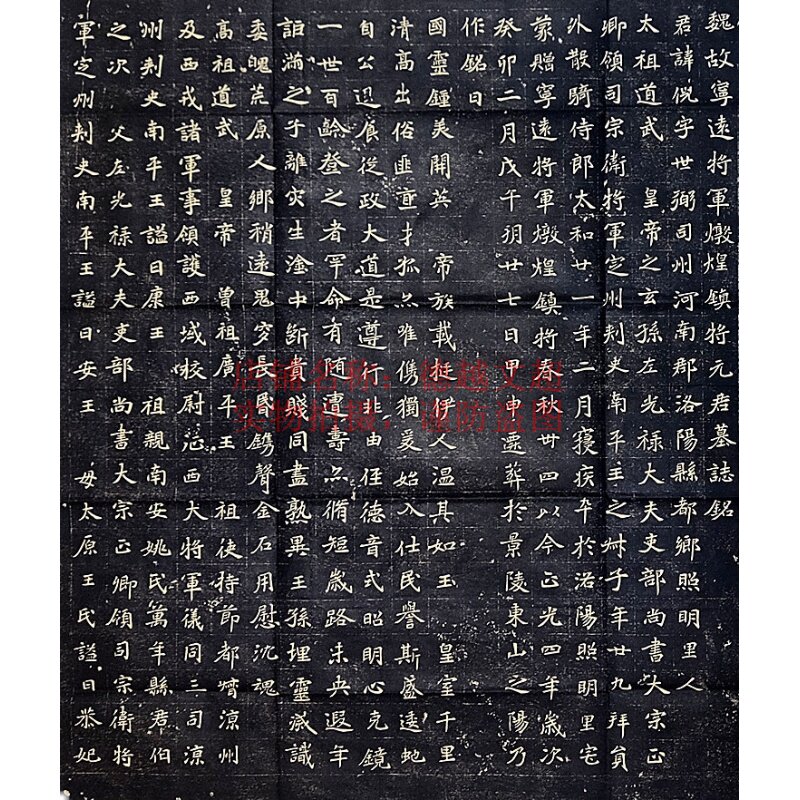 魏故寧遠將軍燉煌鎮將元君墓誌銘
君諱倪字世弼司州河南郡洛陽縣都鄉照明里人
太祖道武 皇帝之玄孫左光祿大夫吏部尚書大宗正
卿領司宗衛將軍定州刾史南平王之叔子年廿九拜員
外散騎侍郎太和廿一年二月寢疾卒於洛陽照明里宅
蒙贈寧遠將軍燉煌鎮將春秋卌四以今正光四年歲次
癸卯二月戊午朔廿七日甲申遷葬於景陵東山之陽乃
作銘曰
國靈鍾美開英 帝族載挺伊人溫其如玉 皇室千里
清高出俗匪直才孤亦唯儁獨爰始入仕民譽斯盛逶虵
自公退食從政大道是遵行不由徑德音式昭明心克鏡
一世百齡登之者罕命有隨遭壽亦脩短歲路未央遐年
詎滿之子離災生淦中斷貴賤同盡孰異王孫埋靈識
委魄荒原人鄉稍遠鬼穸長昏鐫聲金石用慰沉魂
高祖道武 皇帝 曾祖廣平王 祖使持節都督涼州
及西戎諸軍事領護西域校尉西大將軍儀同三司涼
州刾史南平王謚曰康王 祖親南安姚氏萬年縣君伯
之次 父左光祿大夫吏部尚書大宗正卿領司宗衛將
軍定州刾史南平王謚曰安王 母太原王氏謚曰恭妃
店铺名称：
实物拍摄，谨防盗图